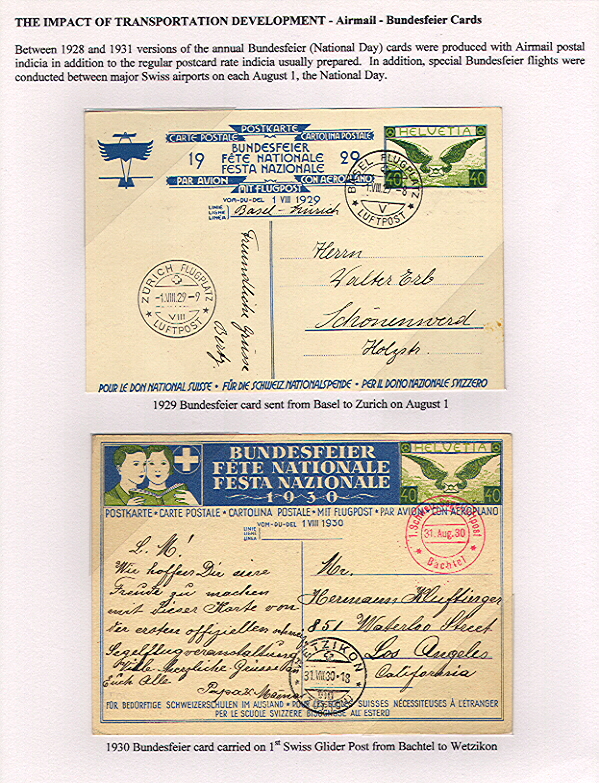 THE IMPACT OF TRANSPORTATION DEVELOPMENT - Airmail - Bundesfeier Cards
Between 1928 and 1931 versions of the annual Bundesfeier (National Day) cards were produced with Airmail postal
indicia in addition to the regular postcard rate indicia usually prepared. In addition, special Bundesfeier flights were
conducted between major Swiss airports on each August 1, the National Day.
POSTKARTE
CARTE POSTALE CARTOLINA POSTALE
BUNDESFEIER
19 FÊTE NATIONALE 29
FESTA NAZIONALE
PAR AVION CON AEROPLANO
MIT FLUGPOST
VOM-DU-DEL 1 VIII 1929
LINIE
LIGNE
LINEA
Basel-Zürich
HELVETIA
40 40
BASEL FLUGPLATZ
1.VIII.29.-8
V
LUFTPOST
Freundliche Grüsse
Berty.
Herrn
Walter Erb
Schönenwerd
Holzstr.
ZÜRICH FLUGPLATZ
-1.VIII.29-9
VIII
LUFTPOST
POUR LE DON NATIONAL SUISSE • FÜR DIE SCHWEIZ. NATIONALSPENDE • PER IL DONO NAZIONALE SVIZZERO
1929 Bundesfeier card sent from Basel to Zurich on August 1
BUNDESFEIER
FÊTE NATIONALE
FESTA NAZIONALE
1930
HELVETIA
40 40
POSTKARTE • CARTE POSTALE • CARTOLINA POSTALE • MIT FLUGPOST • PAR AVION CON AEROPLANO
VOM-DU-DEL 1 VIII 1930
LINIE
LIGNE
LINEA
31. Aug. 30
Bachtel
L. M!
Wir hoffen Dir eine
Freude zu machen
mit dieser Karte von
der ersten offiziellen
Segelflugveranstaltung
Viele herzliche Grüsse
Euch Alle
Papa x Mama
Mr.
Hermann
851 Waterloo Street
Los Angeles
California
WETZIKON
31.VIII.30-18
FÜR BEDÜRFTIGE SCHWEIZERSCHULEN IM AUSLAND • POUR LES SUISSES NÉCESSITEUSES À L'ÉTRANGER
PER LE SCUOLE SVIZZERE BISOGNOSE ALL'ESTERO
1930 Bundesfeier card carried on 1st Swiss Glider Post from Bachtel to Wetzikon